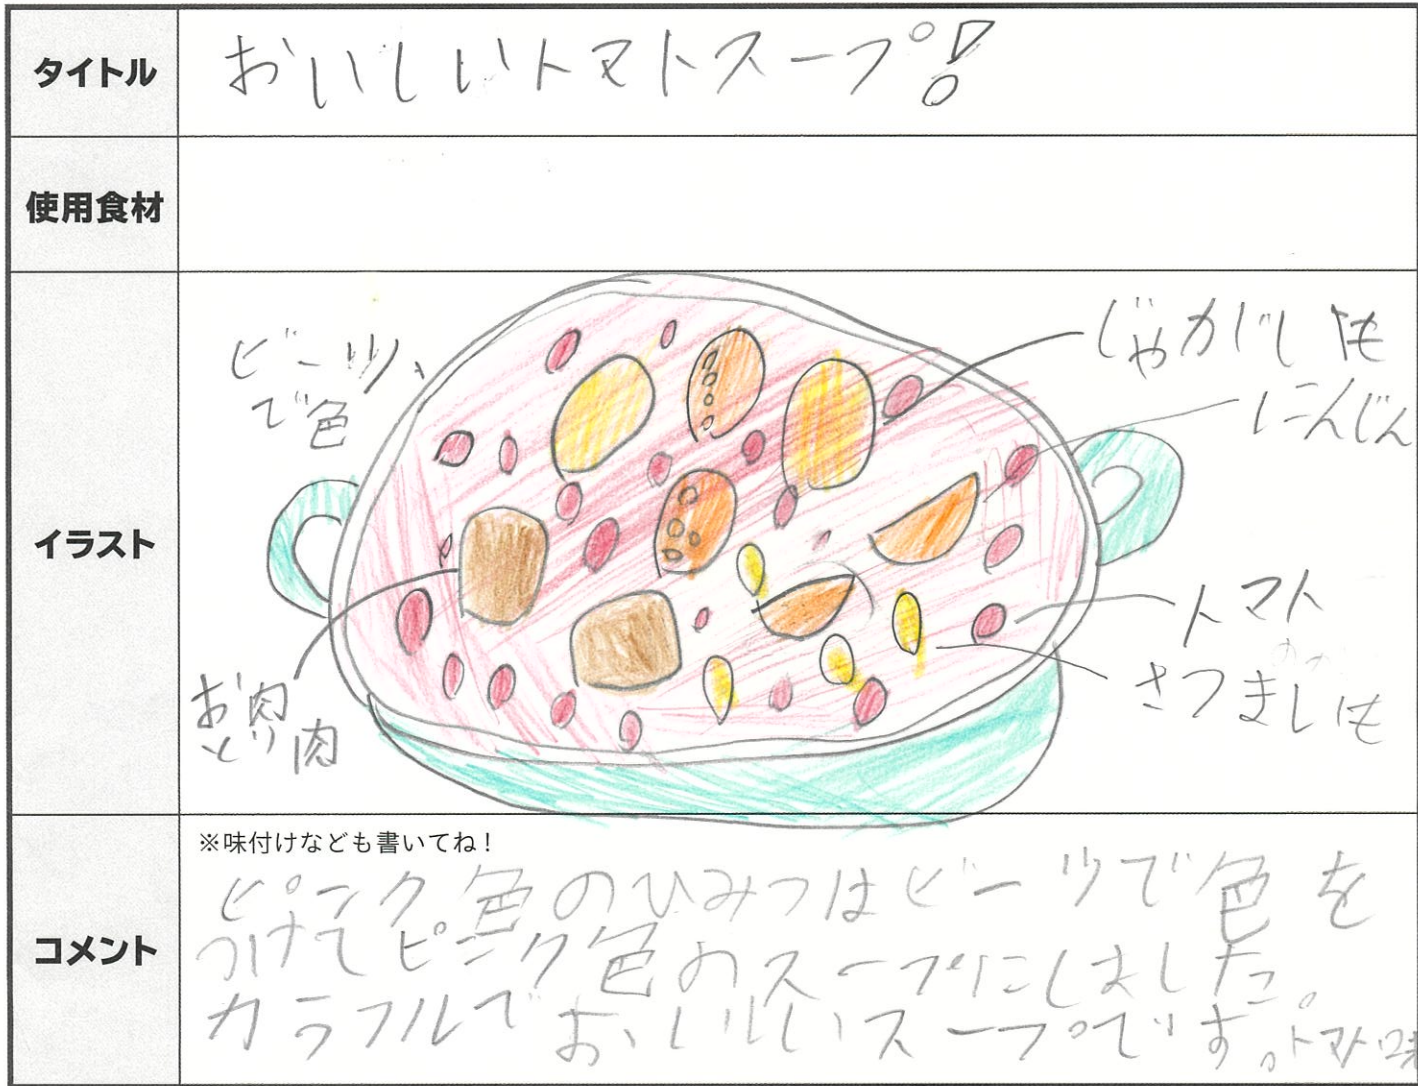 タイトル
おいしいトマトスープ!
使用食材
イラスト
ビーツ
で色
じゃがいも
にんじん
トマト
さつまいも
お肉
とり肉
コメント
※味付けなども書いてね!
ピンク色のひみつはビーツで色を
つけてピンク色のスープにしました。
カラフルでおいしいスープです。トマト味